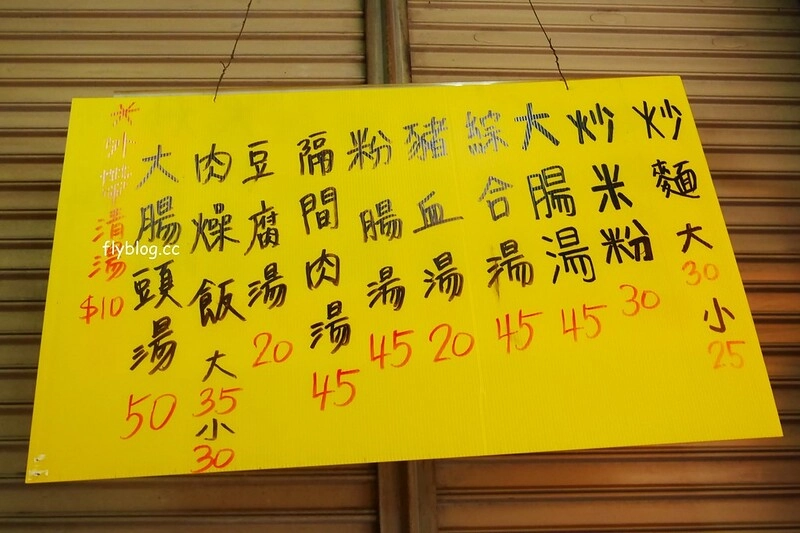 炒麵 大 30 小 25
炒米粉 30
大腸湯 45
綜合湯 45
豬血湯 20
粉腸湯 45
隔間肉湯 45
豆腐湯 20
肉燥飯 大 35 小 30
大腸頭湯 50
外帶清湯 $10
flyblog.cc